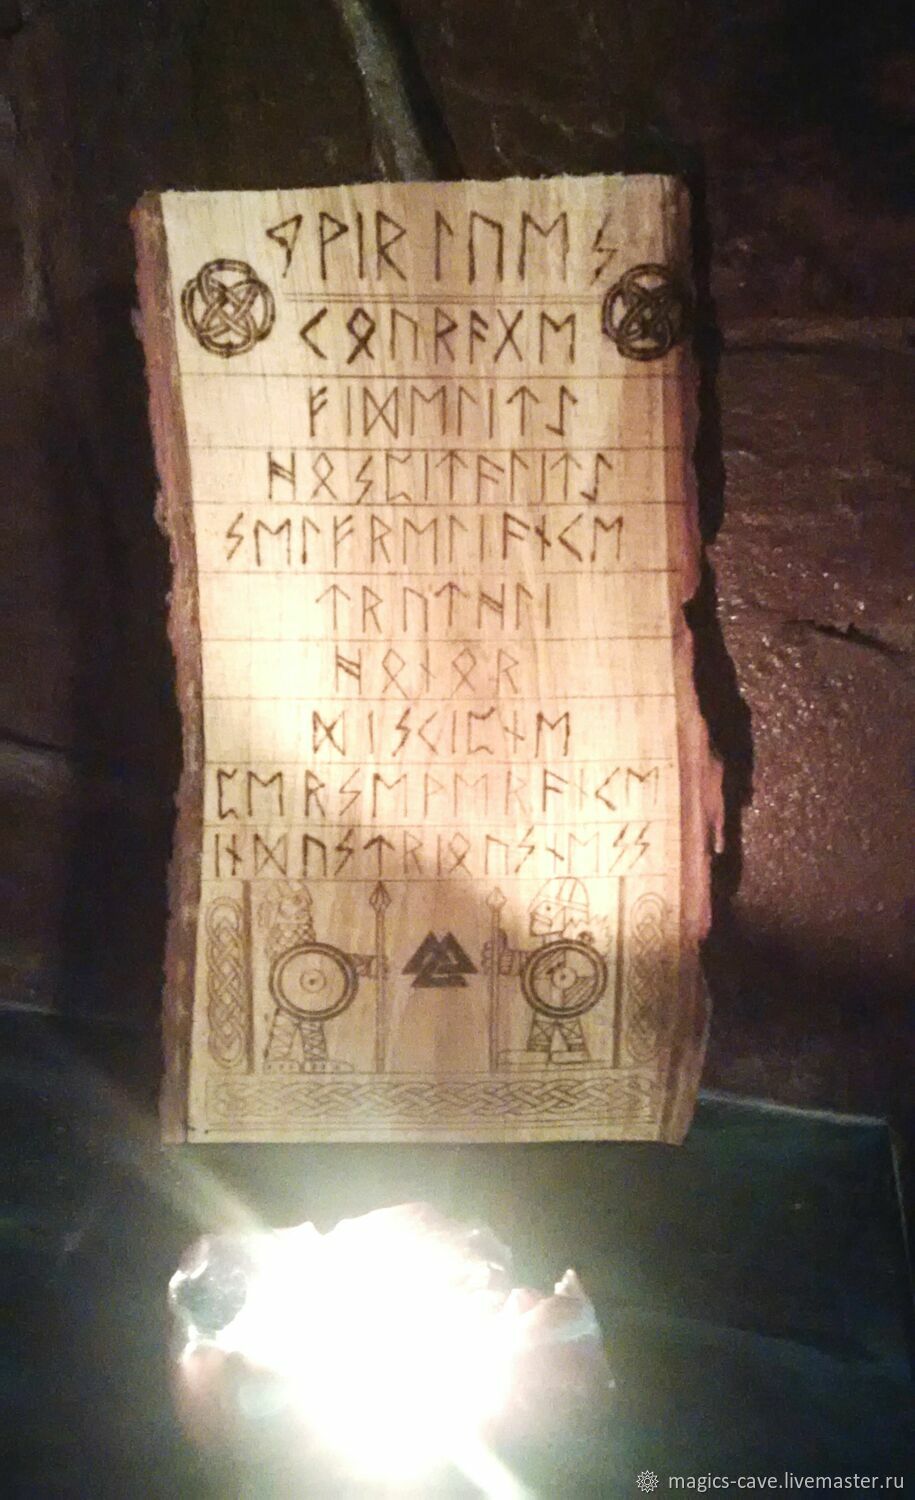 9 ᚹᛁᚱᛚᚢᛖᛊ
ᚲᛟᚢᚱᚨᚷᛖ
ᚠᛁᛞᛖᛚᛁᛏᛇ
ᚺᛟᛊᛈᛁᛏᚨᛚᛁᛏᛇ
ᛊᛖᛚᚠᚱᛖᛚᛁᚨᚾᚲᛖ
ᛏᚱᚢᛏᚺᛚᛁ
ᚺᛟᚾᛟᚱ
ᛞᛁᛊᚲᛁᛈᚾᛖ
ᛈᛖᚱᛊᛖᚹᛖᚱᚨᚾᚲᛖ
ᛁᚾᛞᚢᛊᛏᚱᛁᛟᚢᛊᚾᛖᛊᛊ
magics-cave.livemaster.ru